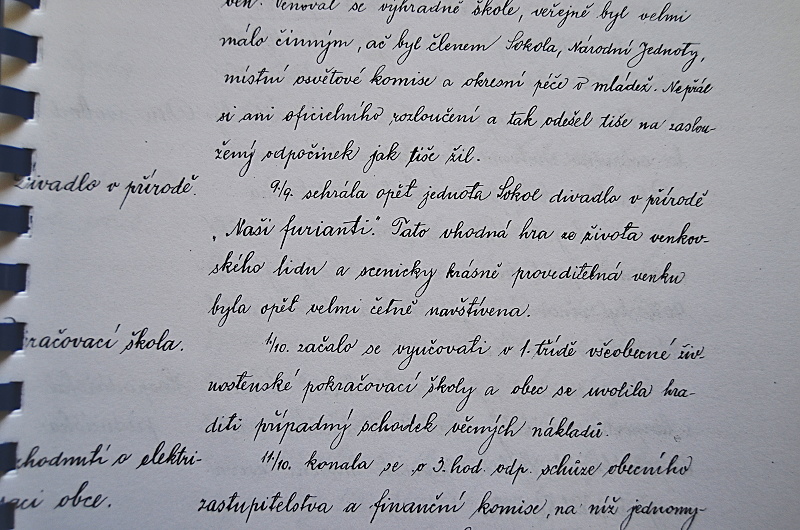 ven. Věnoval se výhradně škole, veřejně byl velmi
málo činným, ač byl členem Sokola, Národní Jednoty,
místní osvětové komise a okresní péče o mládež. Nepřál
si ani oficielního rozloučení a tak odešel tiše na zaslou-
žený odpočinek jak tiše žil.
Divadlo v přírodě.
9/9. sehrála opět jednota Sokol divadlo v přírodě
„Naši furianti." Tato vhodná hra ze života venkov-
ského lidu a scenicky krásně proveditelná venku
byla opět velmi četně navštívena.
račovací škola.
1/10. začalo se vyučovati v 1. třídě všeobecné živ-
nostenské pokračovací školy a obec se uvolila hra-
diti případný schodek věcných nákladů.
zhodnutí o elektri-
11/10. konala se o 3. hod. odp. schůze obecního
aci obce.
zastupitelstva a finanční komise, na níž jednomy-